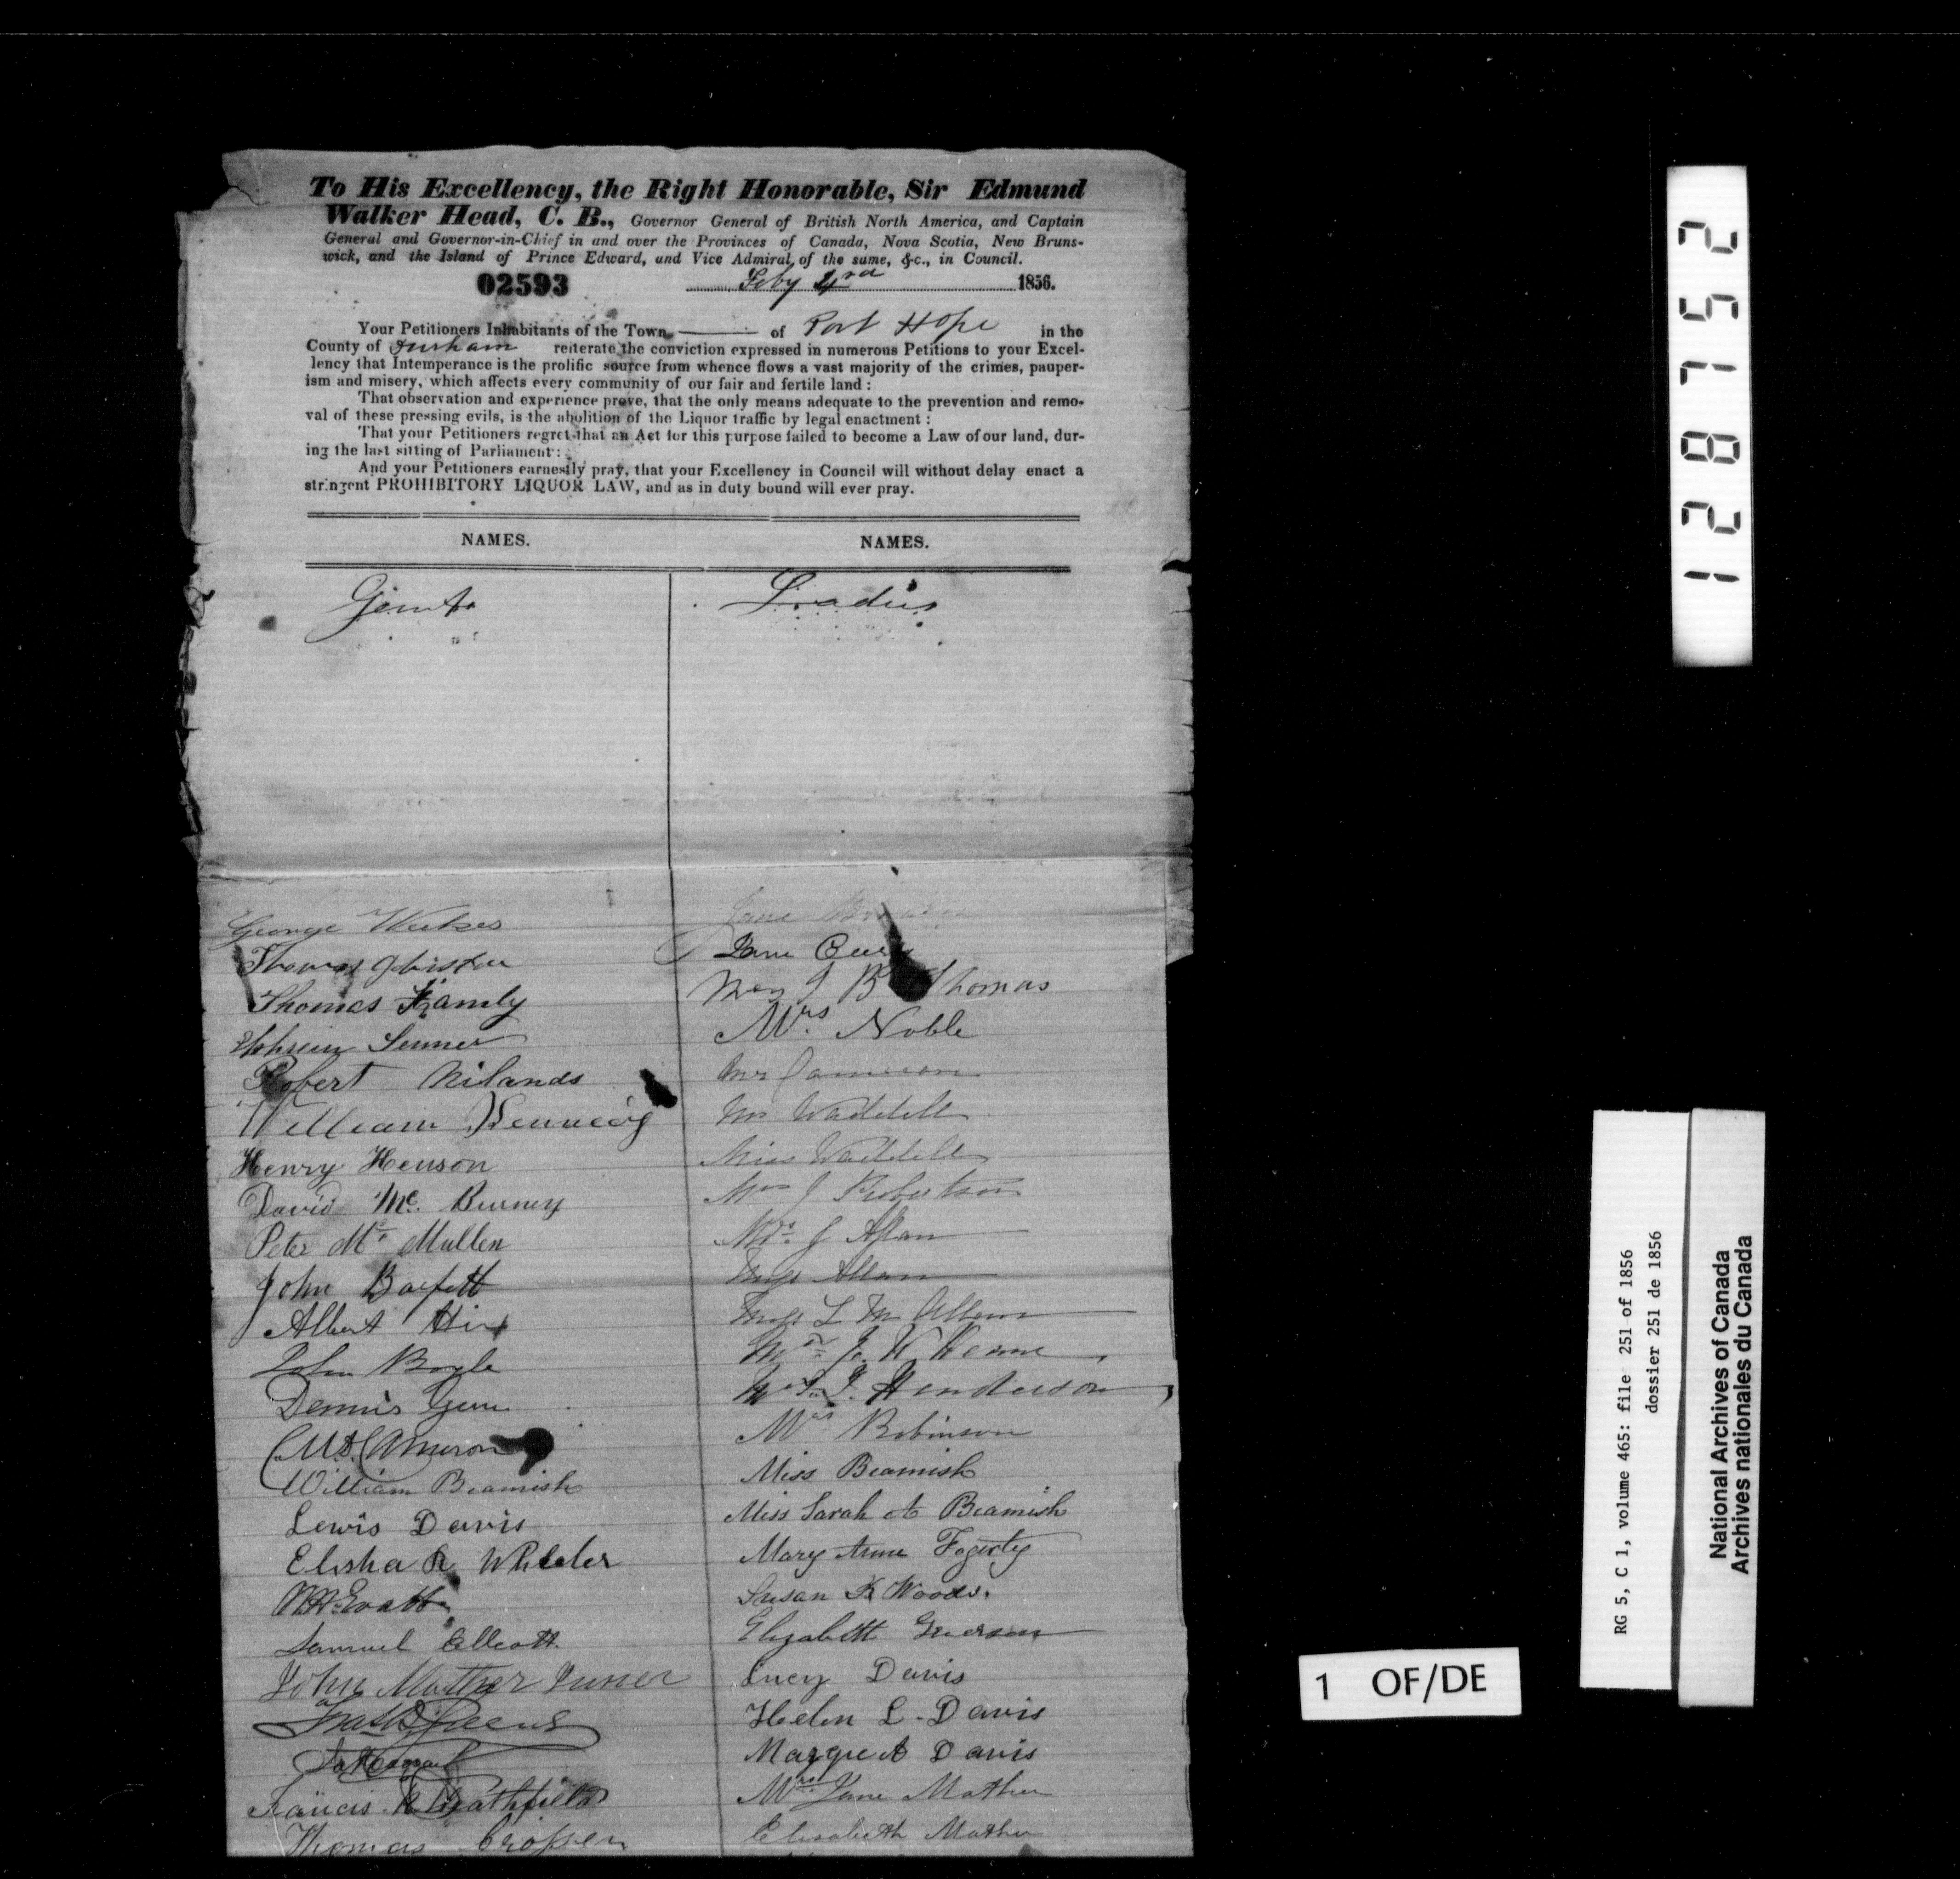 To His Excellency, the Right Honorable, Sir Edmund
Walker Head, C. B., Governor General of British North America, and Captain
General and Governor-in-Chief in and over the Provinces of Canada, Nova Scotia, New Bruns-
wick, and the Island of Prince Edward, and Vice Admiral of the same, &c., in Council.
02593 Feby 1856.
Your Petitioners Inhabitants of the Town of Port Hope in the
County of Durham reiterate the conviction expressed in numerous Petitions to your Excel-
lency that Intemperance is the prolific source from whence flows a vast majority of the crimes, pauper-
ism and misery, which affects every community of our fair and fertile land :
That observation and experience prove, that the only means adequate to the prevention and remo-
val of these pressing evils, is the abolition of the Liquor traffic by legal enactment :
That your Petitioners regret that an Act for this purpose failed to become a Law of our land, dur-
ing the last sitting of Parliament :
And your Petitioners earnestly pray, that your Excellency in Council will without delay enact a
stringent PROHIBITORY LIQUOR LAW, and as in duty bound will ever pray.
NAMES.
Gents
George
Thomas
Thomas
Robert Nilands
William Kennedy
Henry Henson
David Mc. Burney
Peter Mc Mullen
John Barfett
Albert
John Boyle
Dennis
Cameron
William Beamish
Lewis Davis
Elisha R Wheeler
Samuel
John Mather
Francis
Thomas
NAMES.
Ladies
Jane
Jane
J B Thomas
Mrs. Noble
Mrs Cameron
Mrs Waddell
Miss Waddell
Mrs J Robertson
Mrs. J Allan
Miss Allan
Miss L M Allan
Mrs J.
Mrs J. Henderson
Mrs Robinson
Miss Beamish
Miss Sarah A Beamish
Mary Anne Fogerty
Susan K Woods.
Elizabeth
Lucy Davis
Helen L. Davis
Davis
Mrs. Jane Mather
Elisabeth Mather
1287152
RG 5, C 1, volume 465: file 251 of 1856
dossier 251 de 1856
National Archives of Canada
Archives nationales du Canada
1 OF/DE